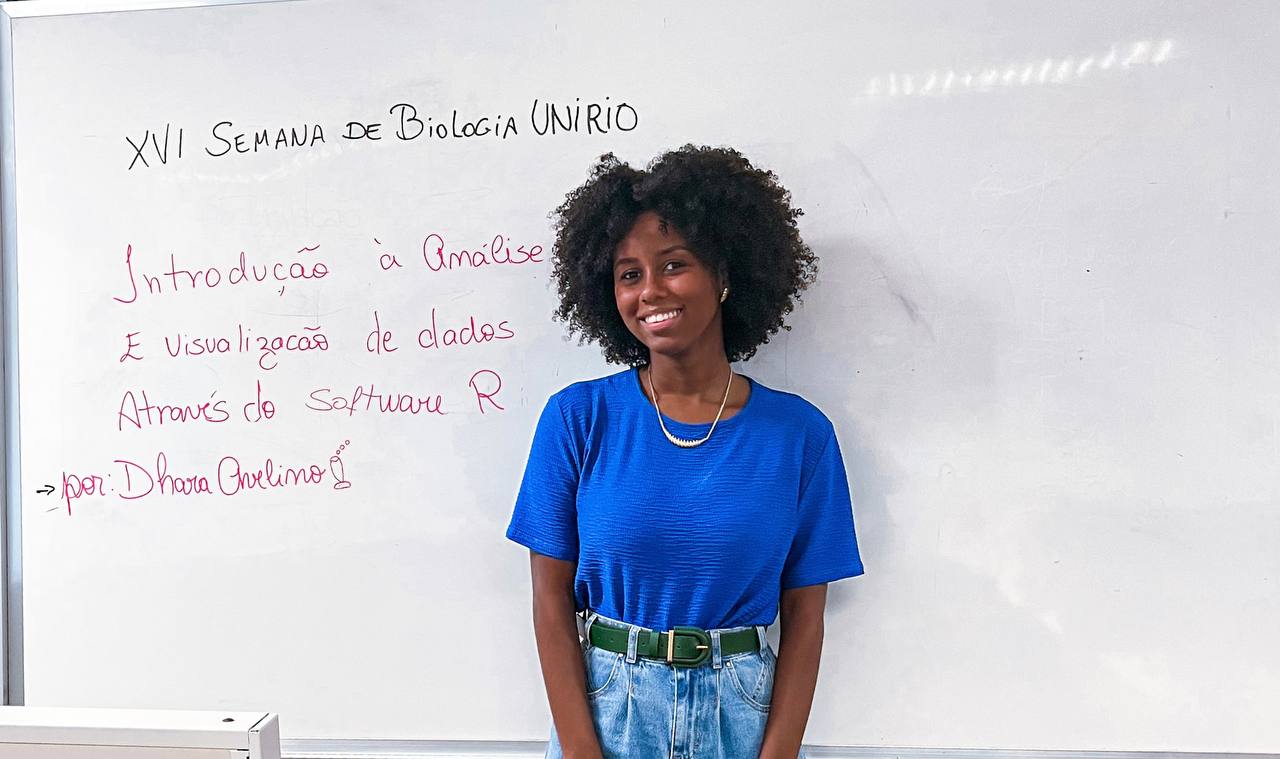 XVI SEMANA DE BIOLOGIA UNIRIO
Introdução à Análise
E visualização de dados
Através do software R
→ por: Dhara Avelino